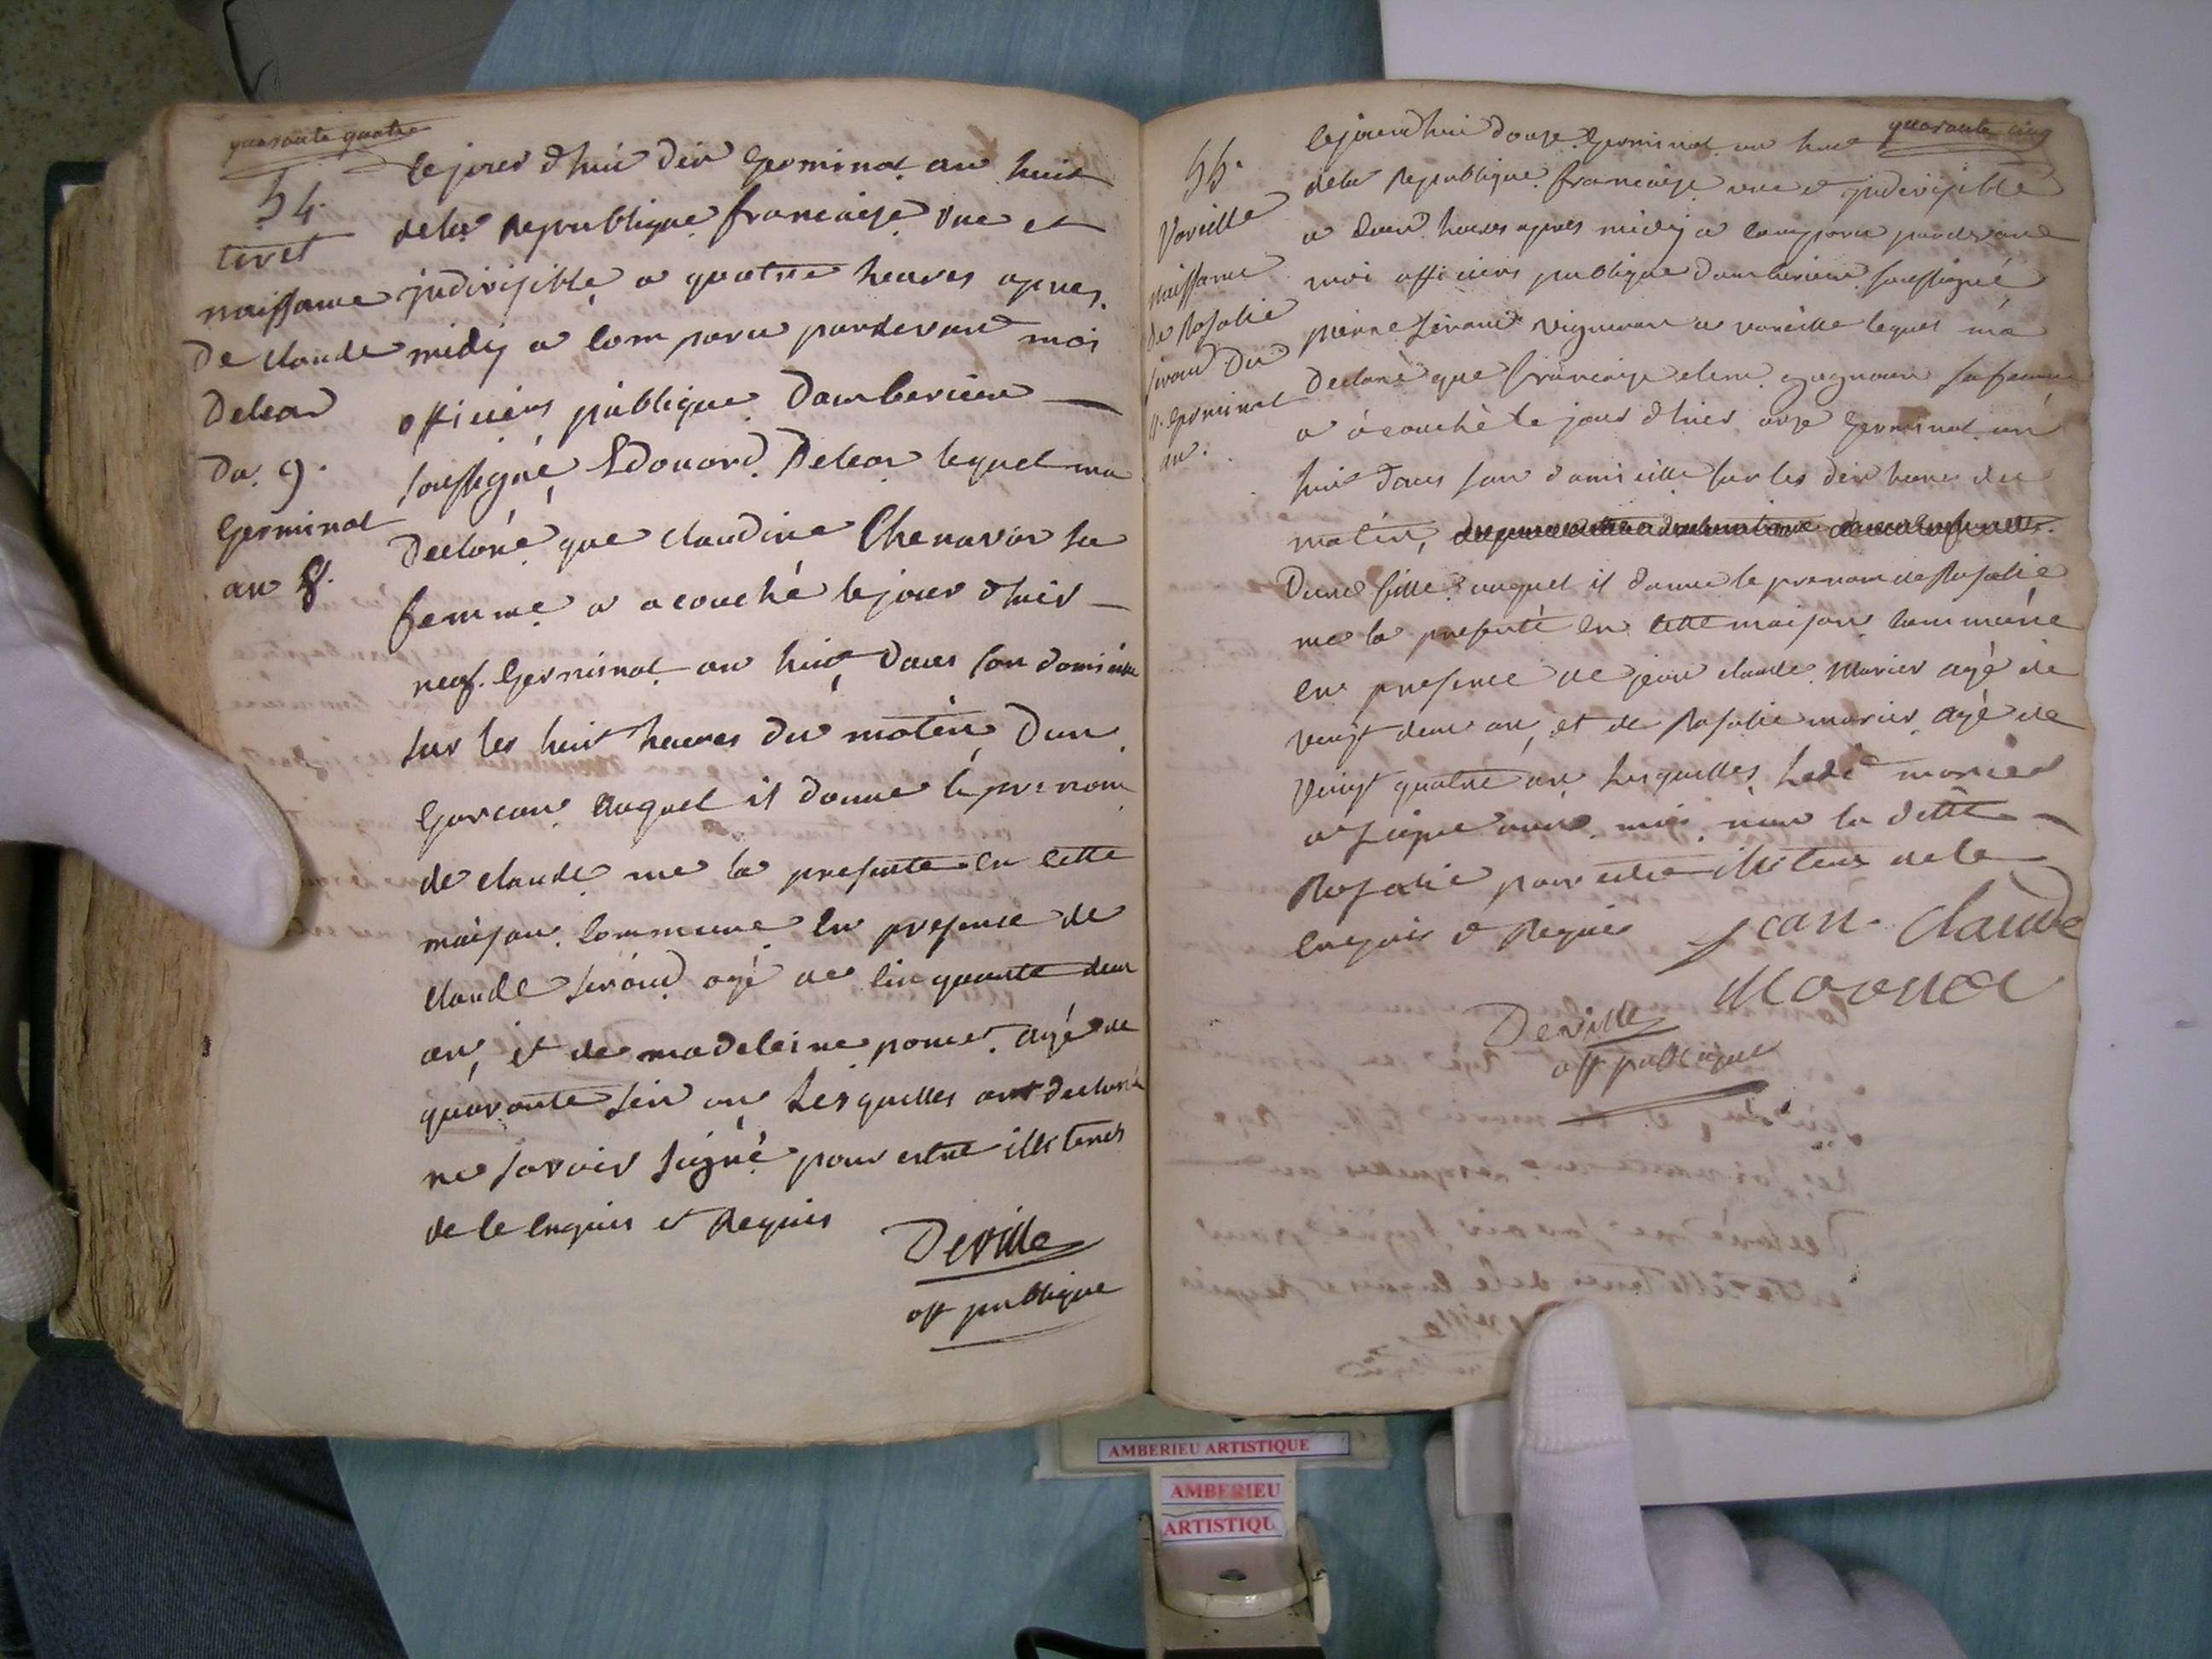 quarante quatre
54.
tiret
naissance
De claude
Deleas
Du. 9.
Germinal
an 8.
Lejour d'hui dix Germinal an huit
dela Republique francaise une et
jndivisible a quatre heures apres
midy a Comparu pardevant moi
officiers publique Damberieux
soussigné, Edouard Deleas lequel ma
Declaré que claudine Chenavas sa
femme a acouché lejour d'hier
neuf Germinal an huit, dans son domicille
sur les huit heures du matin Dun
Garcon auquel il donne le prenom
de claude me la presente en cette
maison Commune en presence de
claude siroud agé de Cinquante deux
an, et de madeleine poncet agé de
quarante six an Lesquelles ont declaré
ne savoir signé pour estre illiterés
de le enquis et Requis
Deville
off publique
quarante cinq
55.
Vareille
naissance
de Rosalie
siroud Du
11. Germinal
an.
Lejourdhui douze Germinal an huit
dela Republique francaise une et jndivisible
a deux heures apres midy a Comparu pardevant
moi officiers publique Damberieux soussigné
pierre siroud vigneron a vareille lequel ma
Declaré que francoise sa femme
a acouché le jour d'hier onze Germinal an
huit dans son domicille sur les dix heures du
matin,
Dune fille auquel il donne le prenom de Rosalie
me la presenté en cette maison Commune
en presence de jean claude Marier agé de
vingt deux an, et de Rosalie marier agé de
Vingt quatre an Lesquelles Ledit marier
a signe avec moi non la ditte
Rosalie pour estre illiteré dele
enquis et Requis
jean Claude
Deville
off publique
AMBERIEU ARTISTIQUE
AMBERIEU
ARTISTIQU